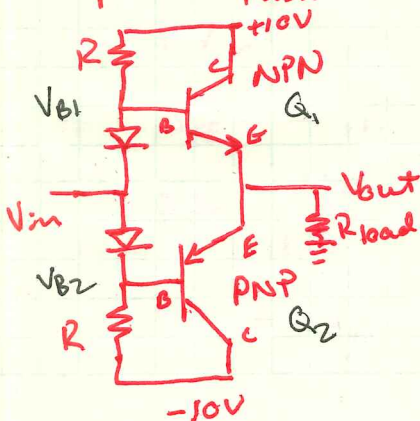 +10V
R
C
NPN
VB1
B
Q1
E
Vin
Vout
Rload
E
VB2
B
PNP
R
C
Q2
-10V